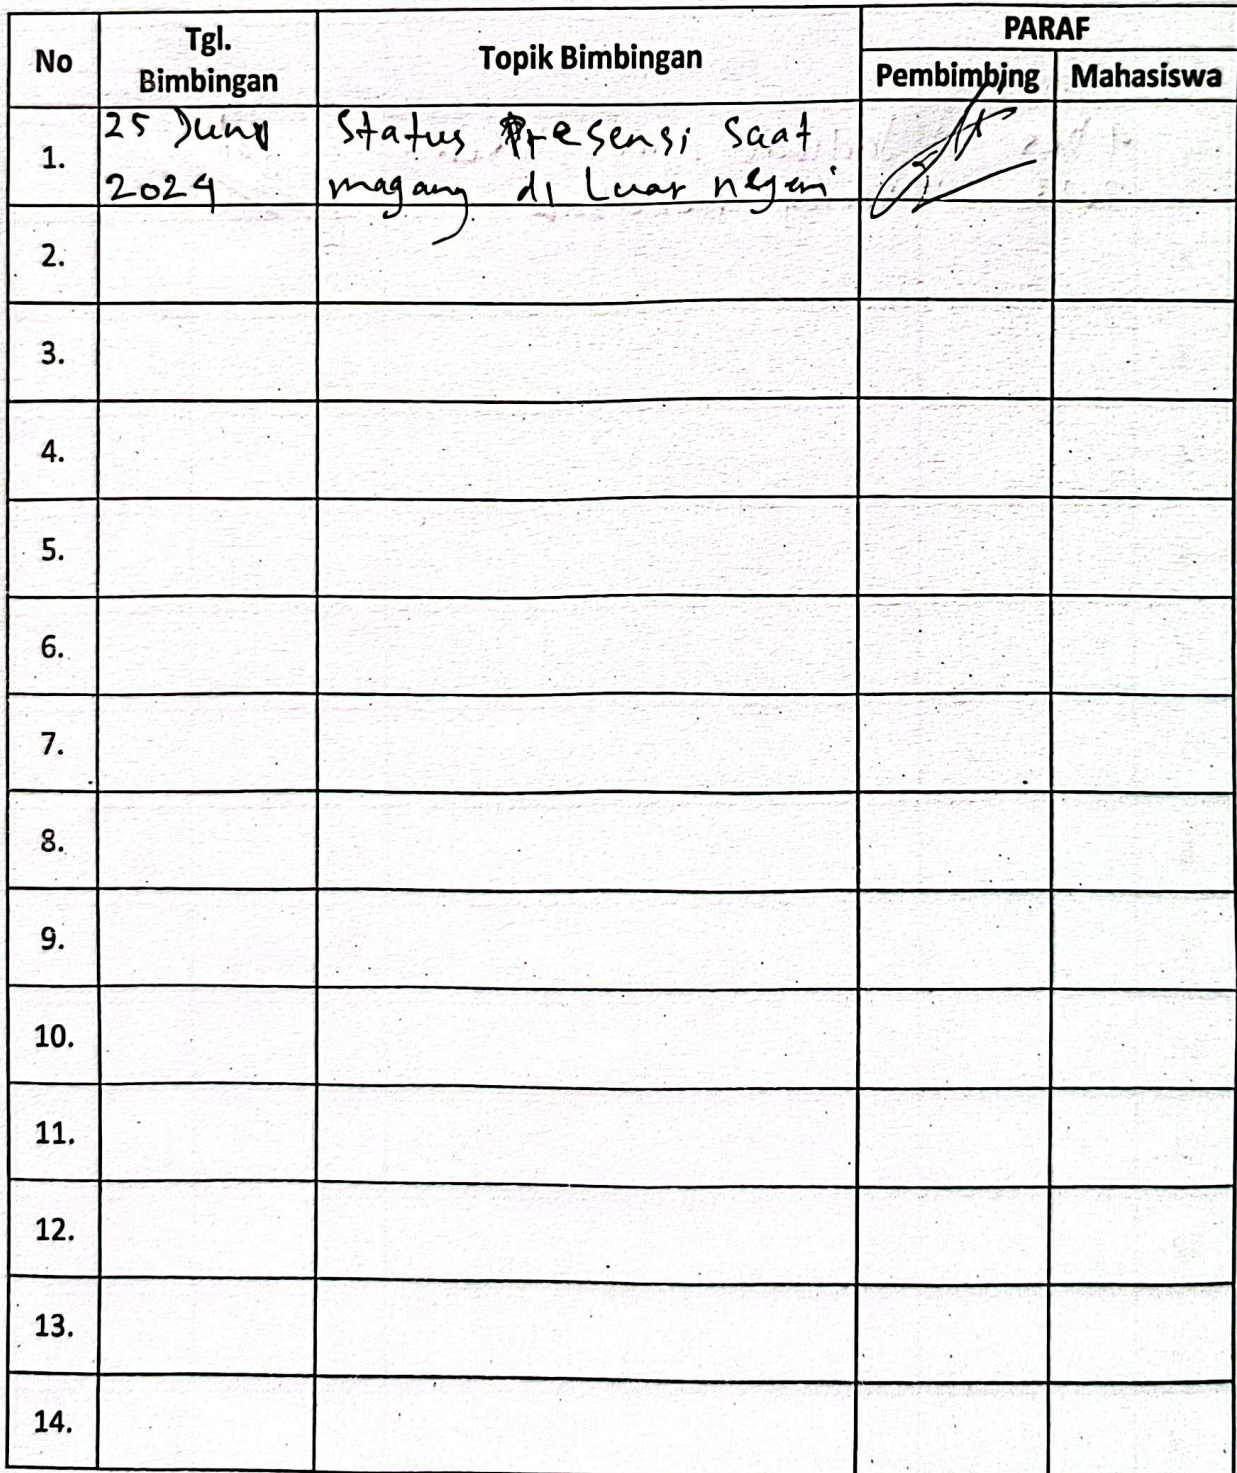 No Tgl. Bimbingan Topik Bimbingan PARAF
Pembimbing Mahasiswa
1. 25 Juni Status Presensi saat
2024 magang di Luar negeri
2.
3.
4.
5.
6.
7.
8.
9.
10.
11.
12.
13.
14.